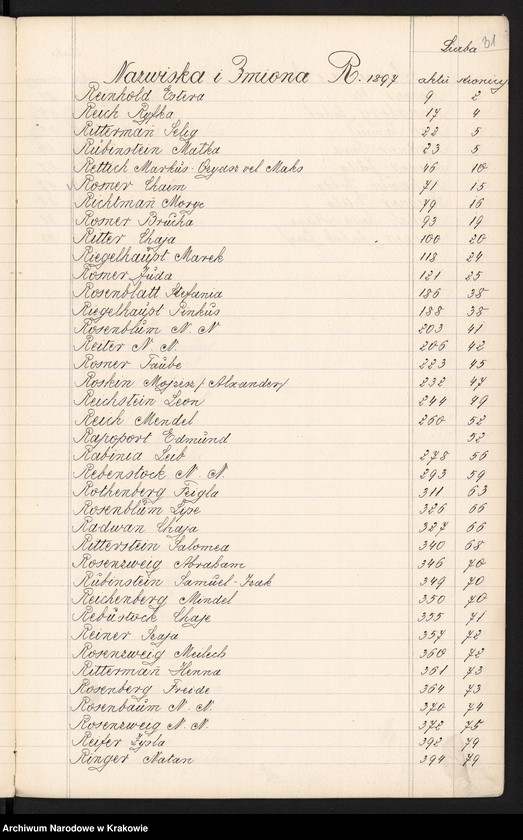 31
Liczba
Nazwiska i Imiona R. 1897 aktu stronicy
Reinhold Estera 9 2
Reich Ryfka 17 4
Ritterman Selig 22 5
Rubinstein Matka 23 5
Rettich Markus-Ozyasz vel Maks 46 10
Rosner Chaim 71 15
Richtman Morye 79 16
Rosner Brucha 93 19
Ritter Chaja 100 20
Riegelhaupt Marek 118 24
Rosner Juda 121 25
Rosenblatt Stefania 186 38
Riegelhaupt Pinkus 188 38
Rosenblum N. N. 203 41
Reiter N. N. 206 42
Rosner Taube 223 45
Roskin Mojżesz /Alexander/ 232 47
Reichstein Leon 244 49
Reich Mendel 260 52
Rapoport Edmund 52
Rabinia Leib 278 56
Rebenstock N. N. 293 59
Rothenberg Feigla 311 63
Rosenblum Zyse 326 66
Radwan Chaja 327 66
Ritterstein Salomea 340 68
Rosenzweig Abraham 346 70
Rubinstein Samuel-Izak 349 70
Reichenberg Mindel 350 70
Rebustock Chaje 355 71
Reiner Szaja 357 72
Rosenzweig Meilech 360 72
Ritterman Henna 361 73
Rosenberg Freide 364 73
Rosenbaum N. N. 370 74
Rosenzweig N. N. 372 75
Reifer Zysla 392 79
Ringer Natan 394 79
Archiwum Narodowe w Krakowie